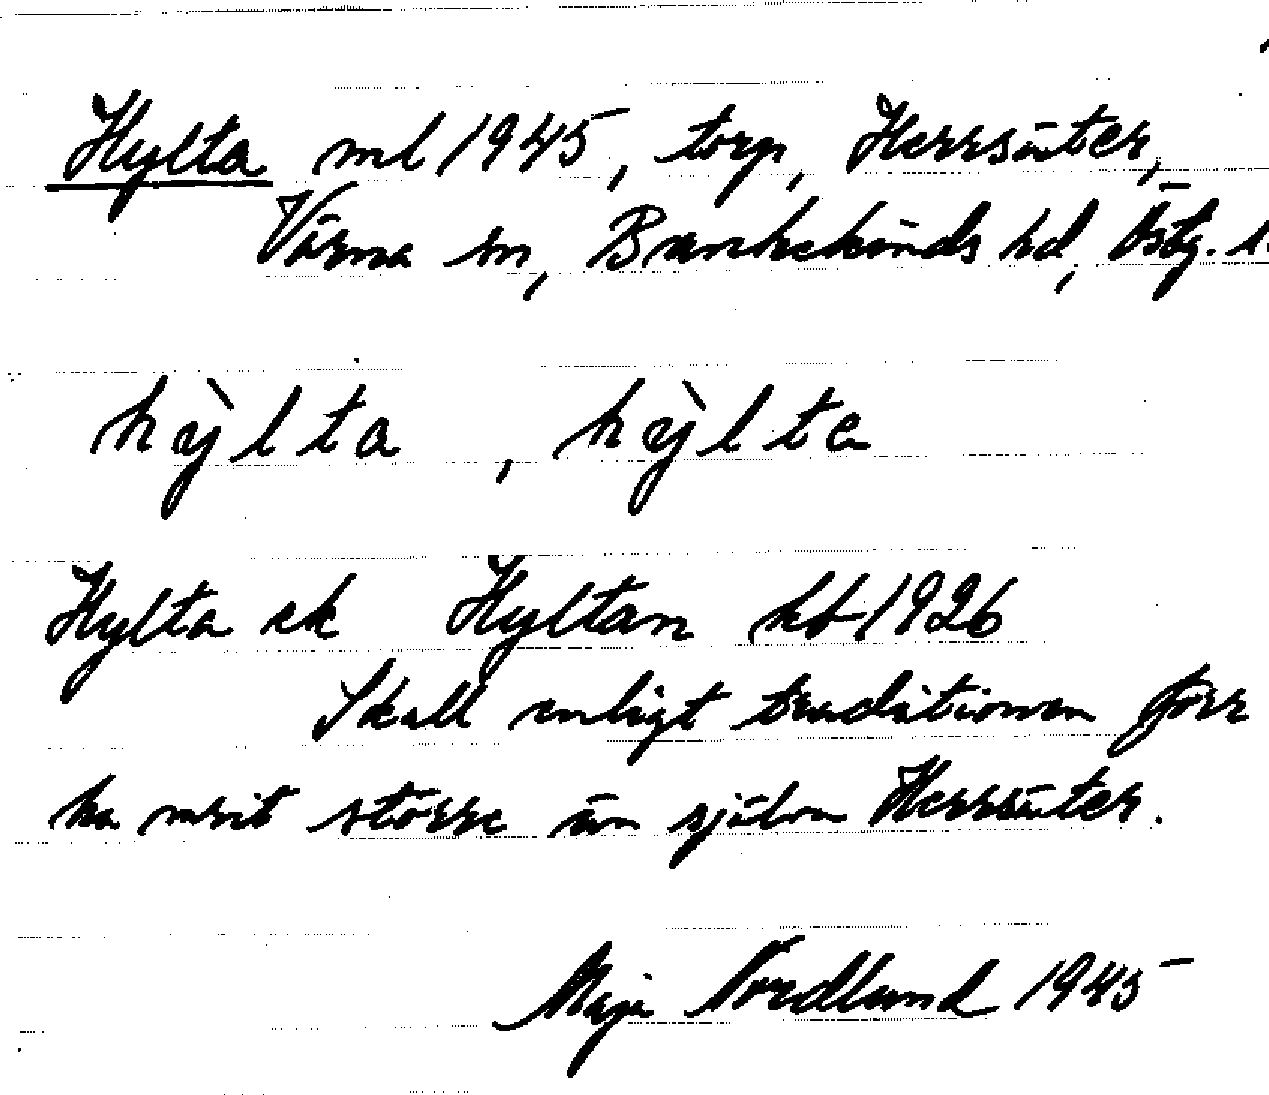 Hylta ml 1945, torp, Herrsäter,
Värna sn, Bankekinds hd, Östg. l.
hỳlta , hỳlta
Hylta ek Hyltan kb 1926
Skall enligt traditionen förr
ha varit större än själva Herrsäter.
Maja Nordlund 1945